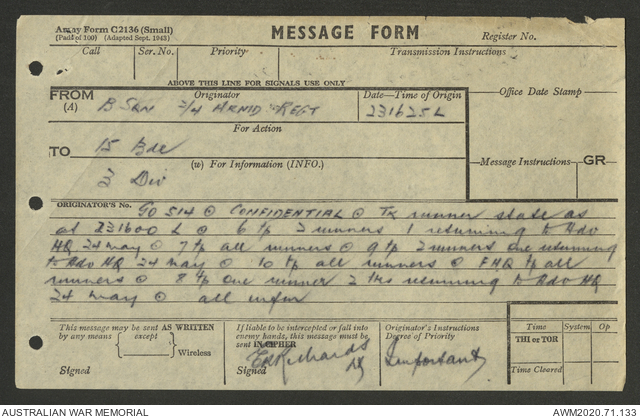 Army Form C2136 (Small)
(Pads of 100) (Adapted Sept. 1943)
MESSAGE FORM
Register No.
Call Ser. No. Priority Transmission Instructions
ABOVE THIS LINE FOR SIGNALS USE ONLY
FROM Originator Date—Time of Origin
(A) B Sqn 2/4 ARMD REGT 231625L
Office Date Stamp
For Action
TO 15 Bde
(w) For Information (INFO.)
Message Instructions GR
3 Div
ORIGINATOR'S No. GO 514 @ CONFIDENTIAL @ Tk runner state as
at 231600 L @ 6 tp 3 runners 1 returning to Adv
HQ 24 May @ 7 tp all runners @ 9 tp 2 runners one returning
to Adv HQ 24 May @ 10 tp all runners @ FHQ tp all
runners @ 8 tp one runner 2 tks returning to Adv HQ
24 May @ all infm
This message may be sent AS WRITTEN
by any means (except
) Wireless
Signed
If liable to be intercepted or fall into
enemy hands, this message must be
sent IN CIPHER
Signed
Originator's Instructions
Degree of Priority
Important
Time System Op
THI or TOR
Time Cleared
AUSTRALIAN WAR MEMORIAL
AWM2020.71.133